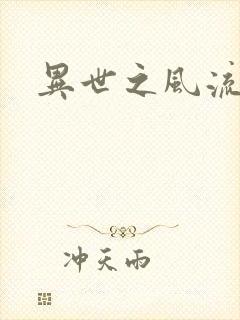 異世之風流
冲天雨